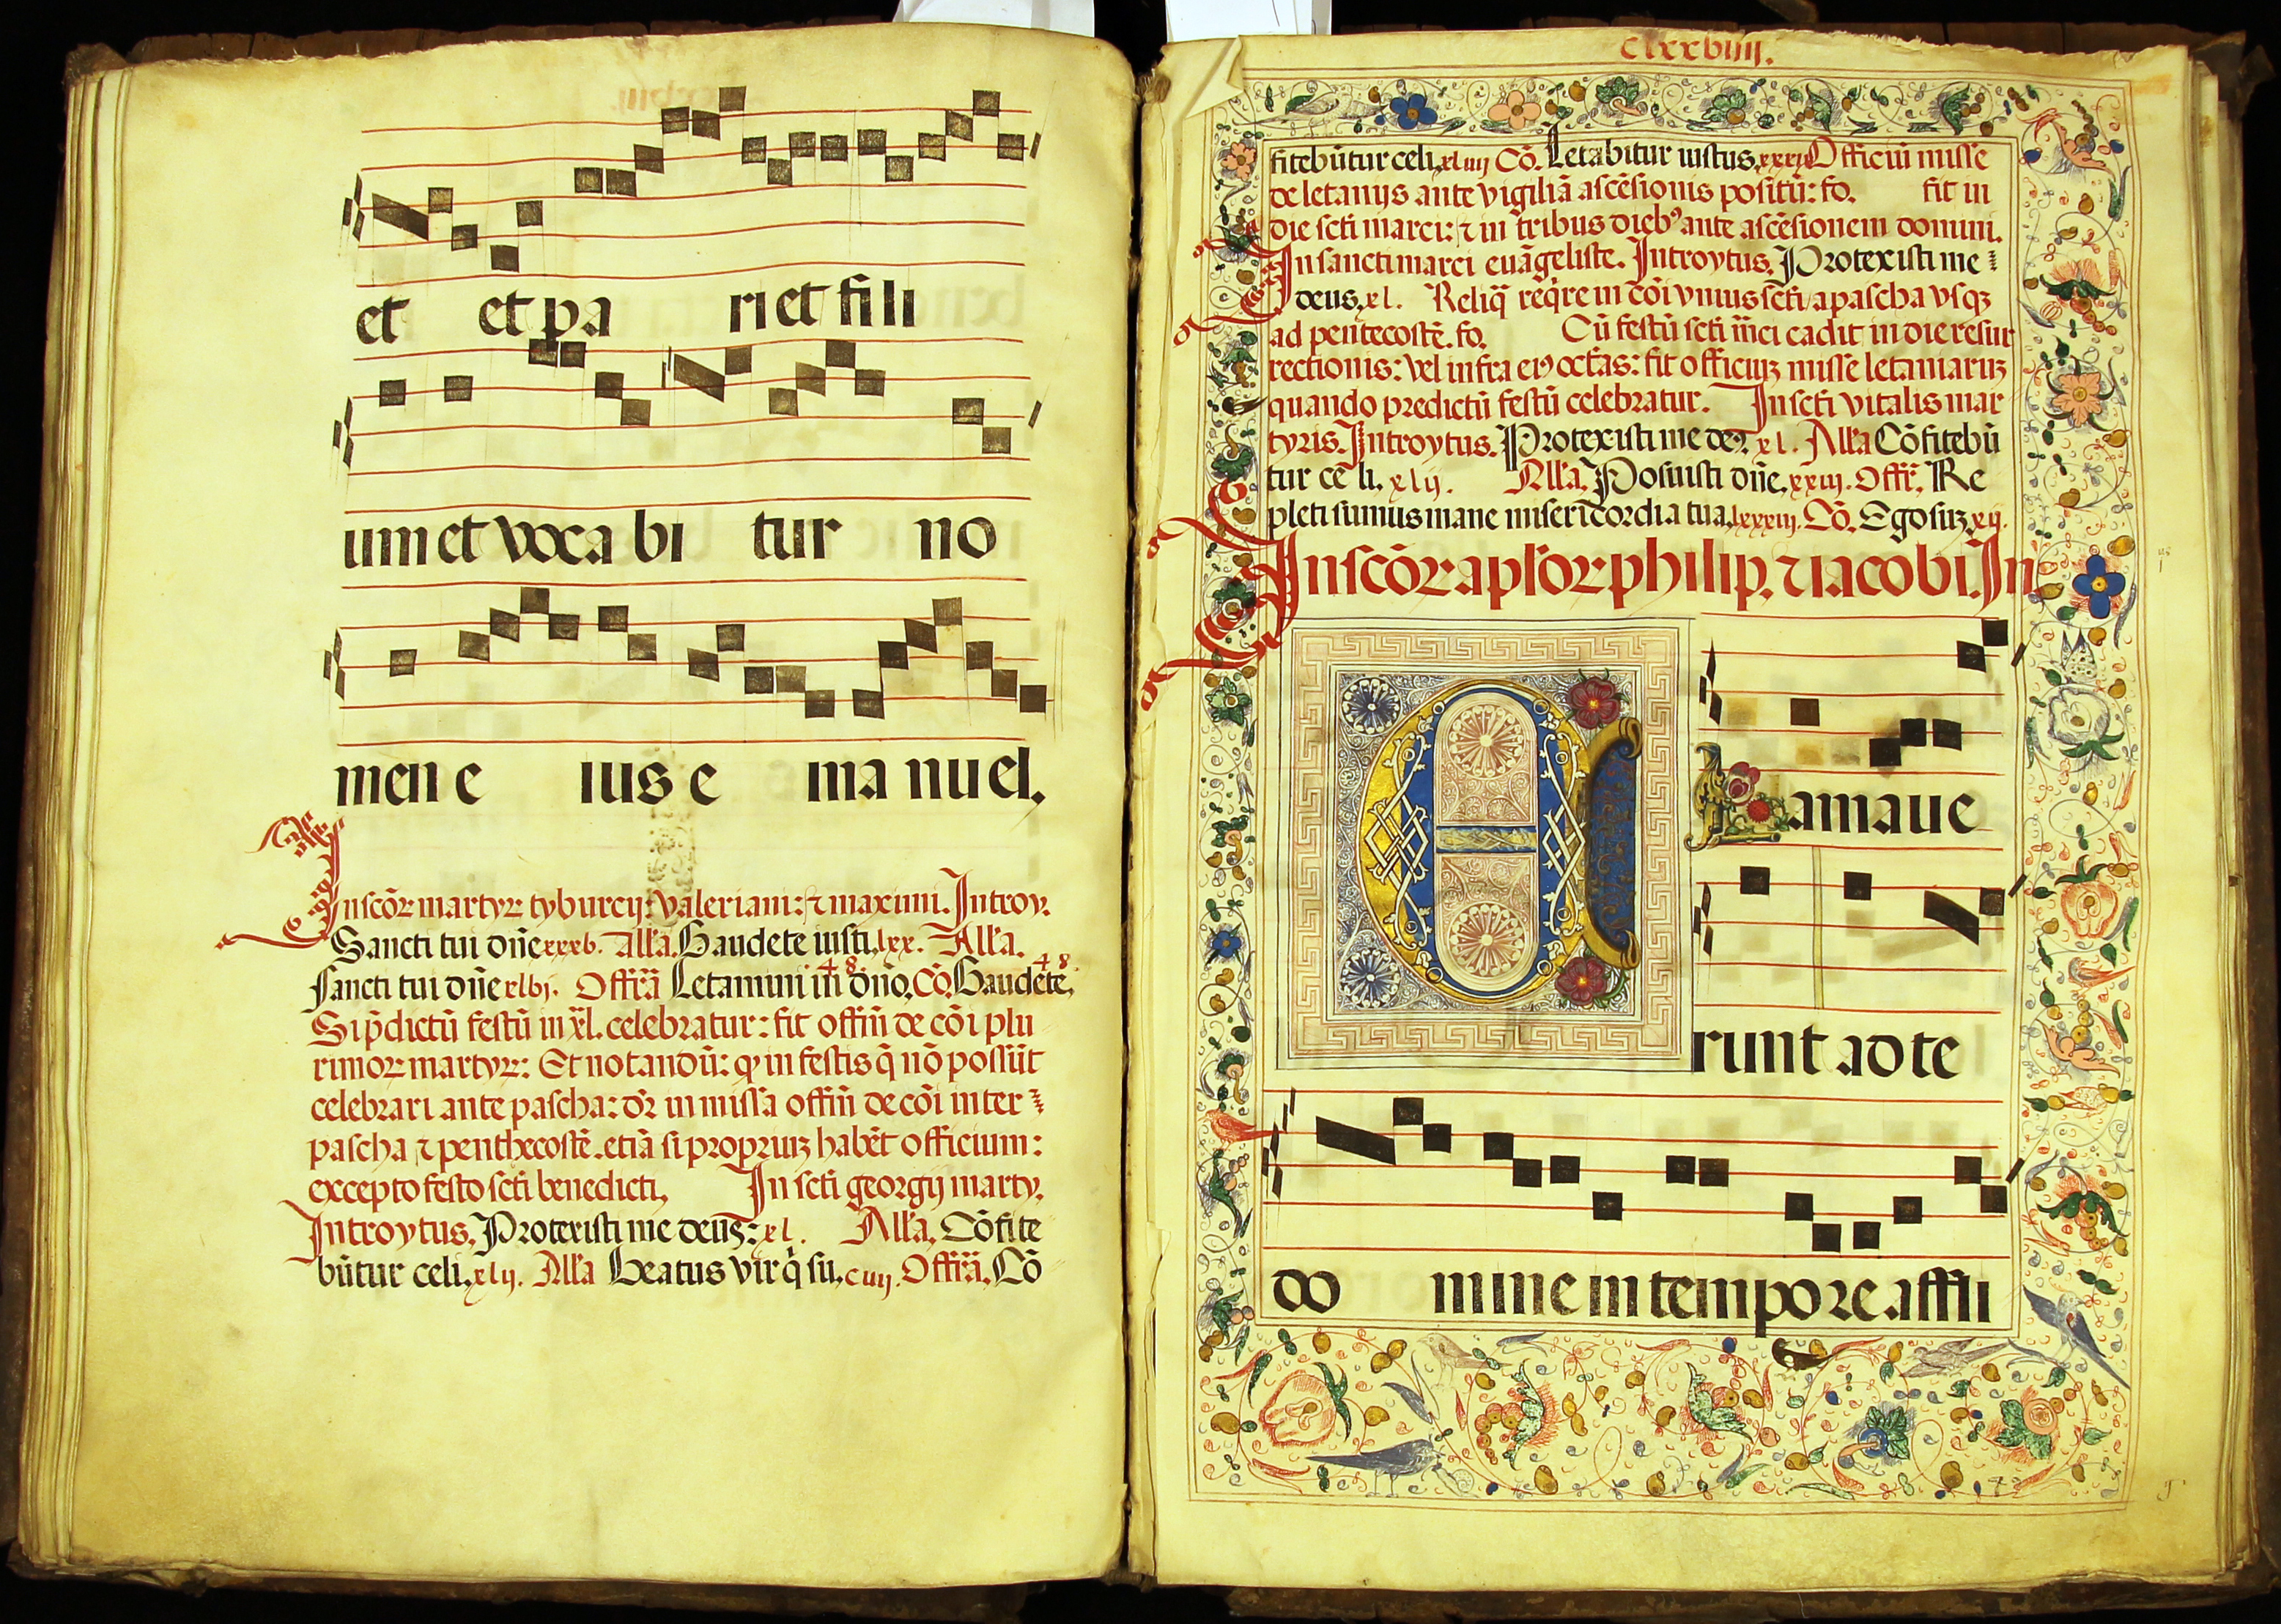 et et pa ri et fili
um et voca bi tur no
men e ius e ma nu el.
In scõr martyr tyburcij: valeriani: ⁊ maximi. Introy.
Sancti tui dñe xxxv. Alľa. Gaudete iusti. lxx. Alľa.
sancti tui dñe xlvj. Offr̃ã Letamini in dño. Cõ. Gaudete.
Si p̃dictũ festũ in xl. celebratur: fit offiñ de cõi plu
rimor martyr: Et notandũ: qp in festis q̃ nõ possũt
celebrari ante pascha: dr̃ in missa offiñ de cõi inter
pascha ⁊ penthecostẽ. etiã si propriuz habẽt officium:
excepto festo scti benedicti. In scti georgij marty.
Introytus. Protexisti me deus: xl. Alľa. Cõfite
bũtur celi. xlij. Alľa Beatus vir q̃ su. ciiij. Offr̃ã. Cõ
clxxviiij.
fitebũtur celi. xliiij Cõ. Letabitur iustus. Officiũ misse
de letanijs ante vigiliã ascẽsionis positũ: fo. fit in
die scti marci: ⁊ in tribus dieb⁹ ante ascẽsionem domini.
In sancti marci euãgeliste. Introytus. Protexisti me
deus. xl. Reliq̃ reqre in cõi vnius scti a pascha vsqz
ad pentecostẽ. fo. Cũ festũ scti m̃ci cadit in die resur
rectionis: vel infra ei⁹ octãs: fit officiuz misse letaniaruz
quando predictũ festũ celebratur. In scti vitalis mar
tyris. Introytus. Protexisti me de⁹: xl. Alľa Cõfitebũ
tur celi. xlij. Alľa. Posuisti dñe. xxiij. Offr̃. Re
pleti sumus mane misericordia tua. lxxxiij. Cõ. Ego suz xij.
In scõr apľor philip. ⁊ iacobi. In
E
X
clamaue
runt ad te
do mine in tempore affli